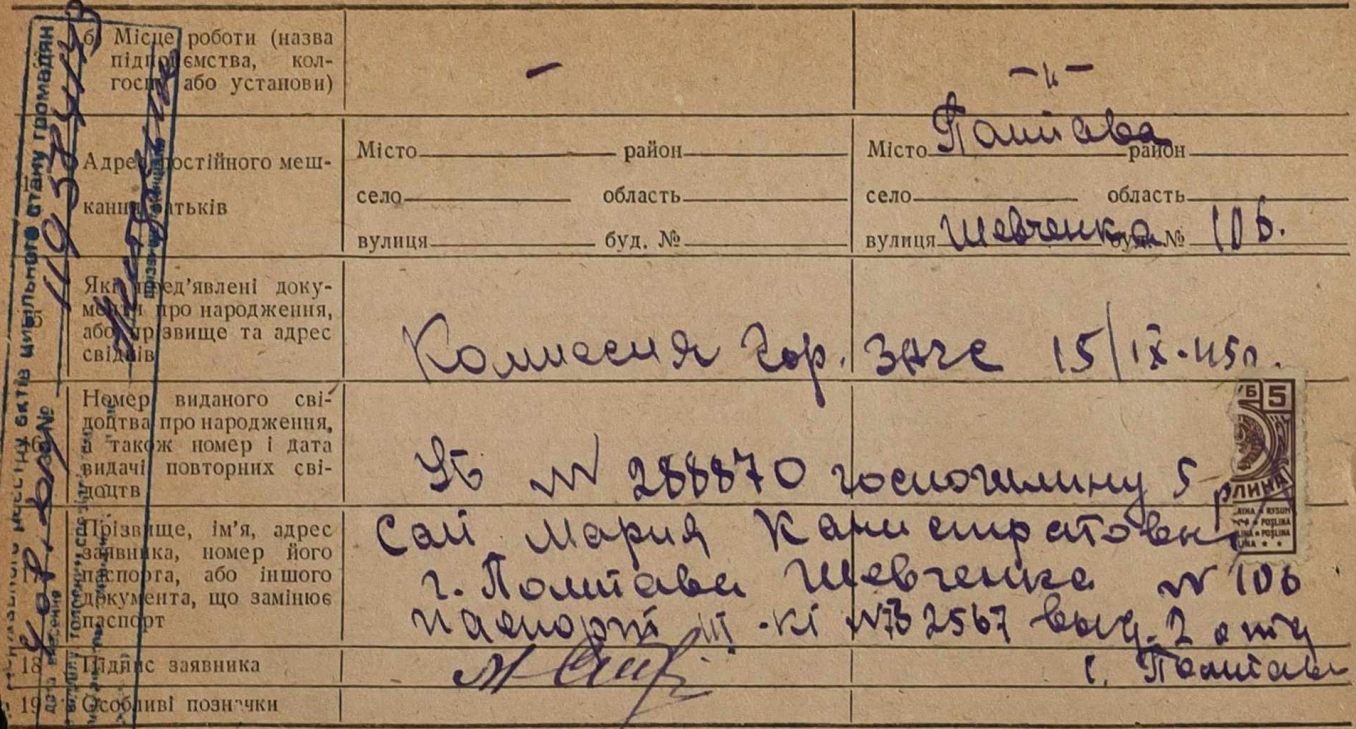 б) Місце роботи (назва
підприємства, кол-
госп, або установи)
— —"—
Адрес постійного меш-
кання батьків
Місто район
село область
вулиця буд. №
Місто Полтава район
село область
вулиця Шевченка буд. № 106.
Які пред'явлені доку-
менти про народження,
або прізвище та адрес
свідків
Комиссия Гор. ЗАГС 15/IX-45г.
Номер виданого сві-
доцтва про народження,
а також номер і дата
видачі повторних сві-
доцтв
УБ № 288870 госпошлину 5 р
Б 5
ЛИНА
Прізвище, ім'я, адрес
заявника, номер його
паспорта, або іншого
документа, що замінює
паспорт
Сай Мария Калистратовна
г. Полтава Шевченка № 106
паспорт № 2567 выд. 2 отд
г. Полтава
18 Підпис заявника
19 Особливі позначки
цивільного стану громадян